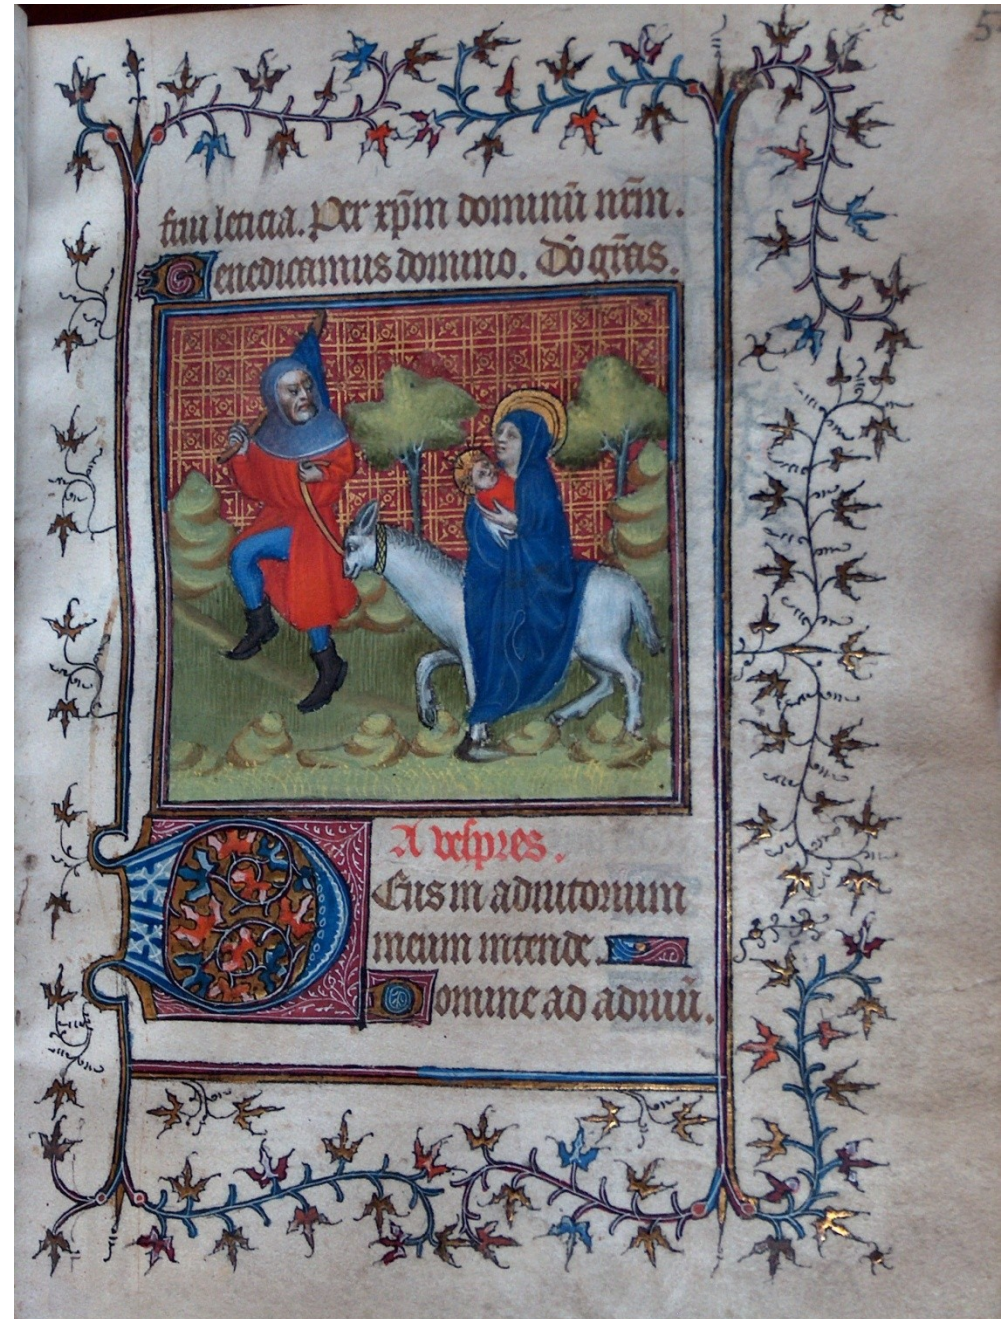 5
frui leticia. Per xp̄m dominū nr̄m.
Benedicamus domino. Dō gr̄as.
A vespres.
Deus in adiutorium
meum intende.
Domine ad adiuū.